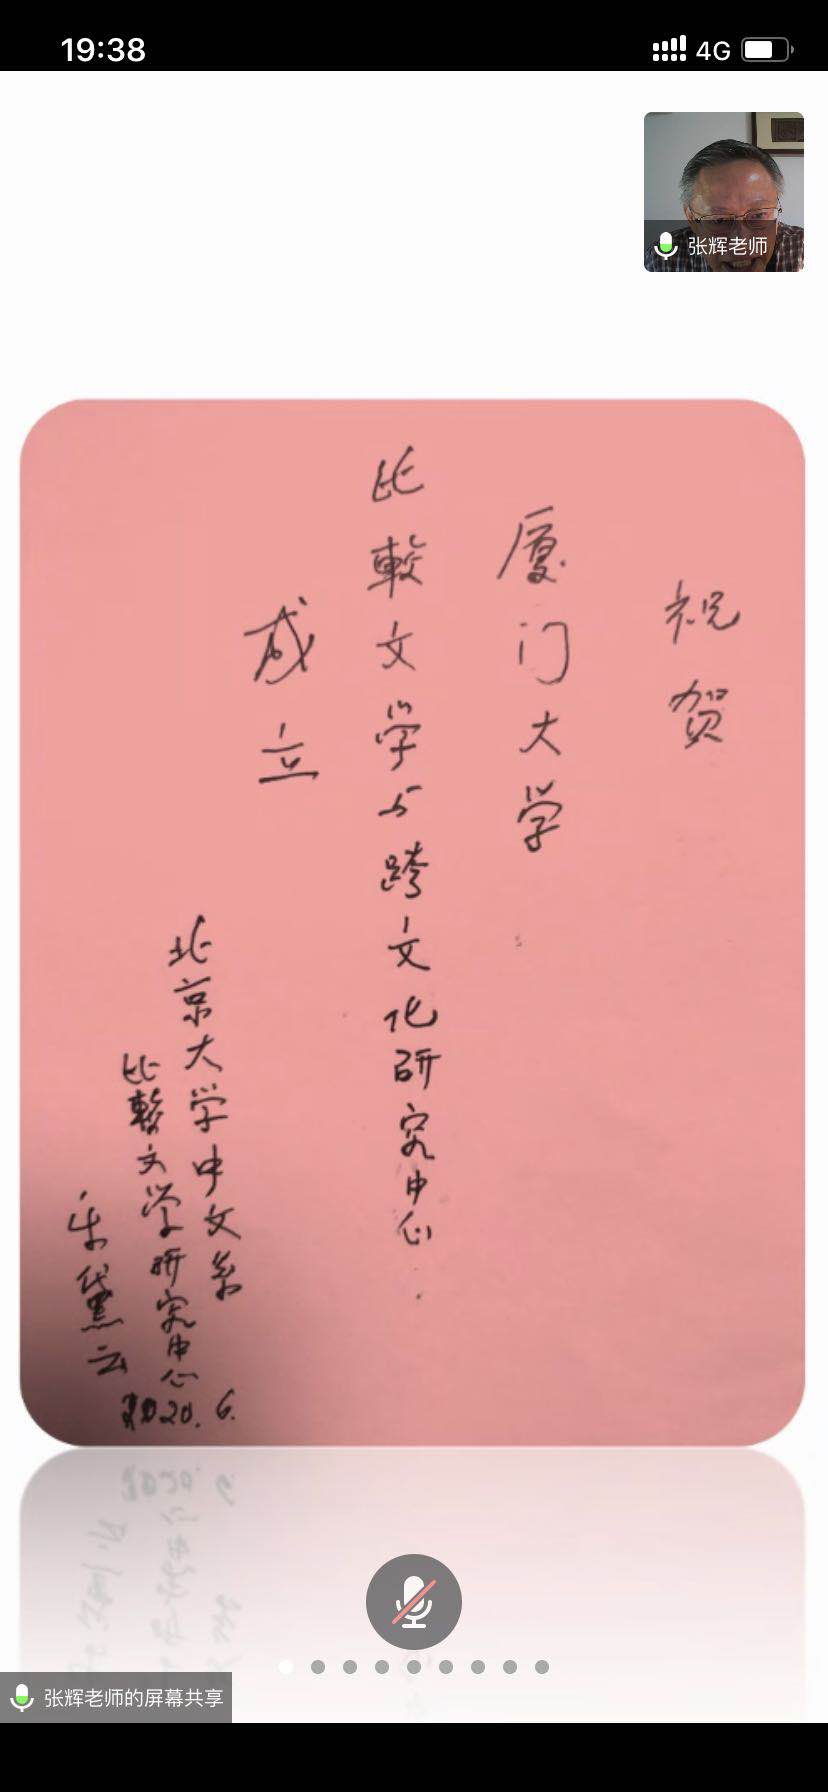 19:38
4G
张辉老师
祝贺
厦门大学
比較文学与跨文化研究中心
成立
北京大学中文系
比較文学研究中心
乐黛云
2020.6.
张辉老师的屏幕共享